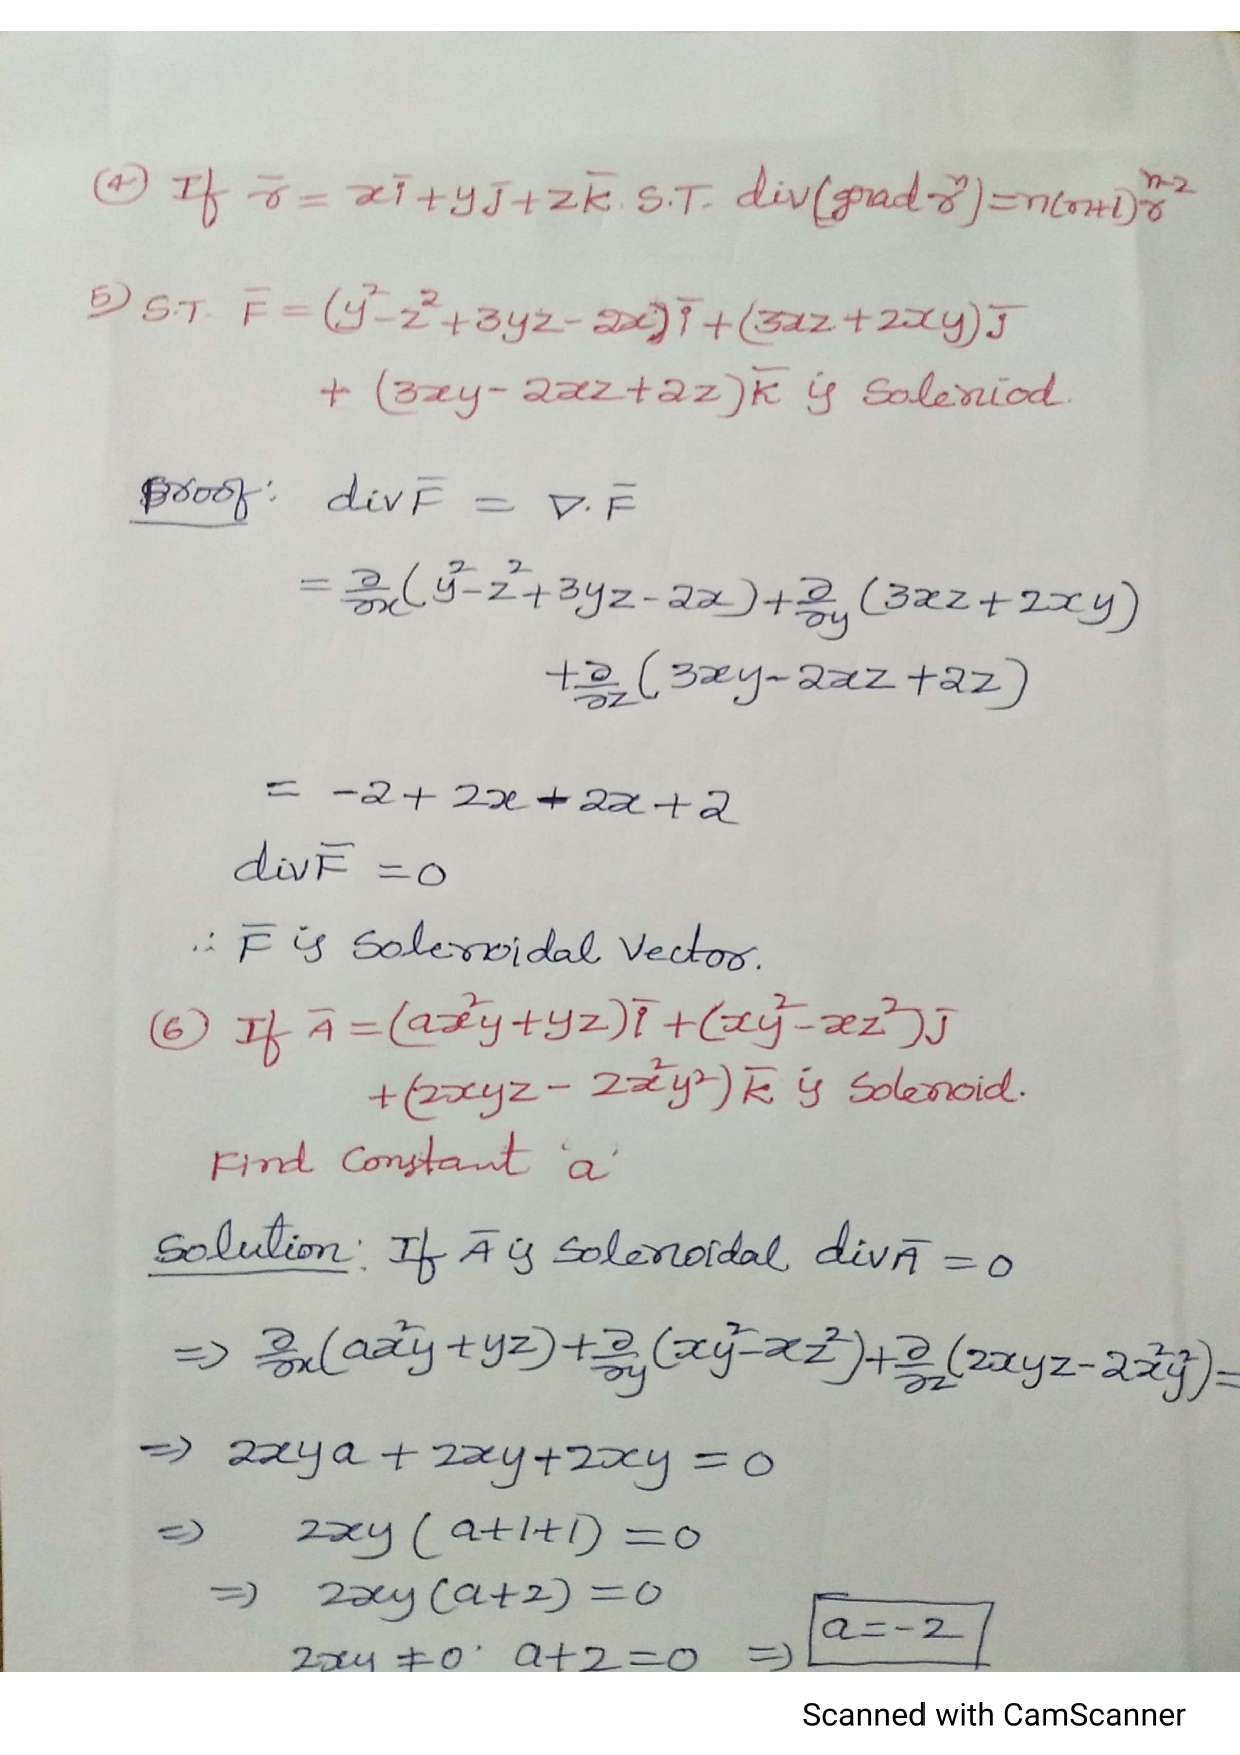 (4) If r̄ = xī+yj̄+zk̄. S.T. div(grad rⁿ)=n(n+1)rⁿ⁻²
5) S.T. F̄ = (y²-z²+3yz-2x)ī+(3xz+2xy)j̄
+ (3xy-2xz+2z)k̄ is Soleniod.
Proof: div F̄ = ∇.F̄
= ∂/∂x(y²-z²+3yz-2x)+∂/∂y(3xz+2xy)
+∂/∂z(3xy-2xz+2z)
= -2+2x+2x+2
div F̄ =0
∴ F̄ is Solenoidal Vector.
(6) If Ā=(ax²y+yz)ī+(xy²-xz²)j̄
+(2xyz-2x²y²)k̄ is Solenoid.
Find Constant 'a'
Solution: If Ā is Solenoidal div Ā = 0
=> ∂/∂x(ax²y+yz)+∂/∂y(xy²-xz²)+∂/∂z(2xyz-2x²y²)=
=> 2xya+2xy+2xy=0
=> 2xy(a+1+1)=0
=> 2xy(a+2)=0
2xy≠0. a+2=0 => a=-2
Scanned with CamScanner